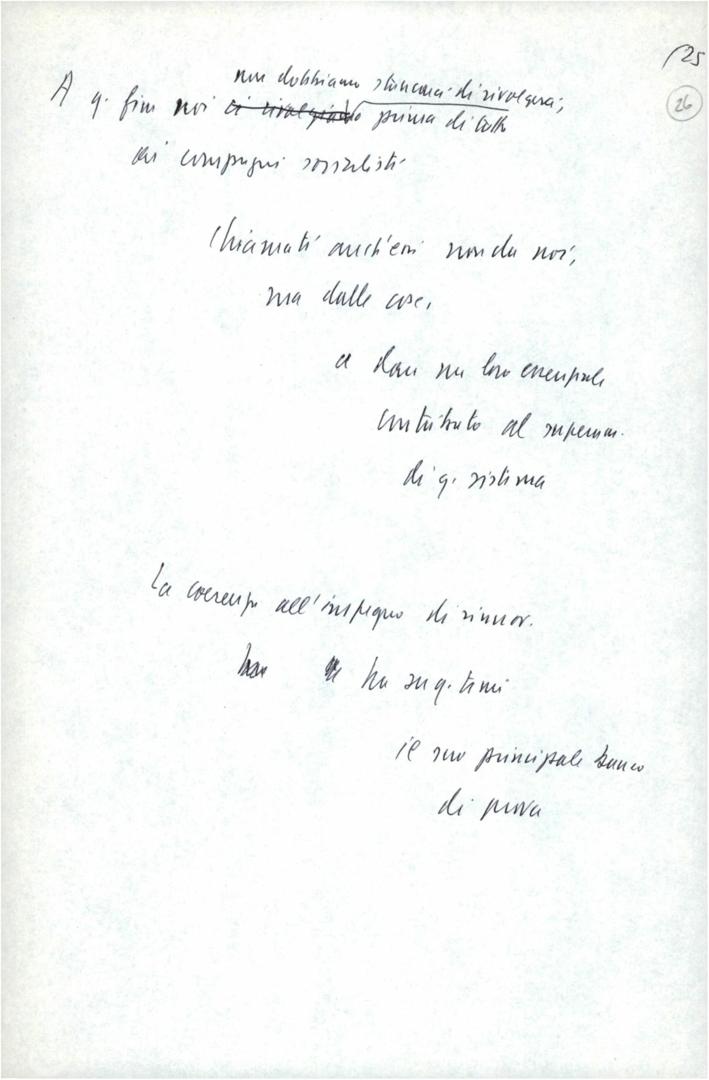 25
26
non dobbiamo stancarci di rivolgerci,
A q. fini noi ci rivolgiamo prima di tutto
ai compagni socialisti
Chiamati anch'essi non da noi,
ma dalle cose,
a dare un loro essenziale
contributo al superam.
di q. sistema
La coerenza all'impegno di rinnov.
ha su q. temi
il suo principale banco
di prova